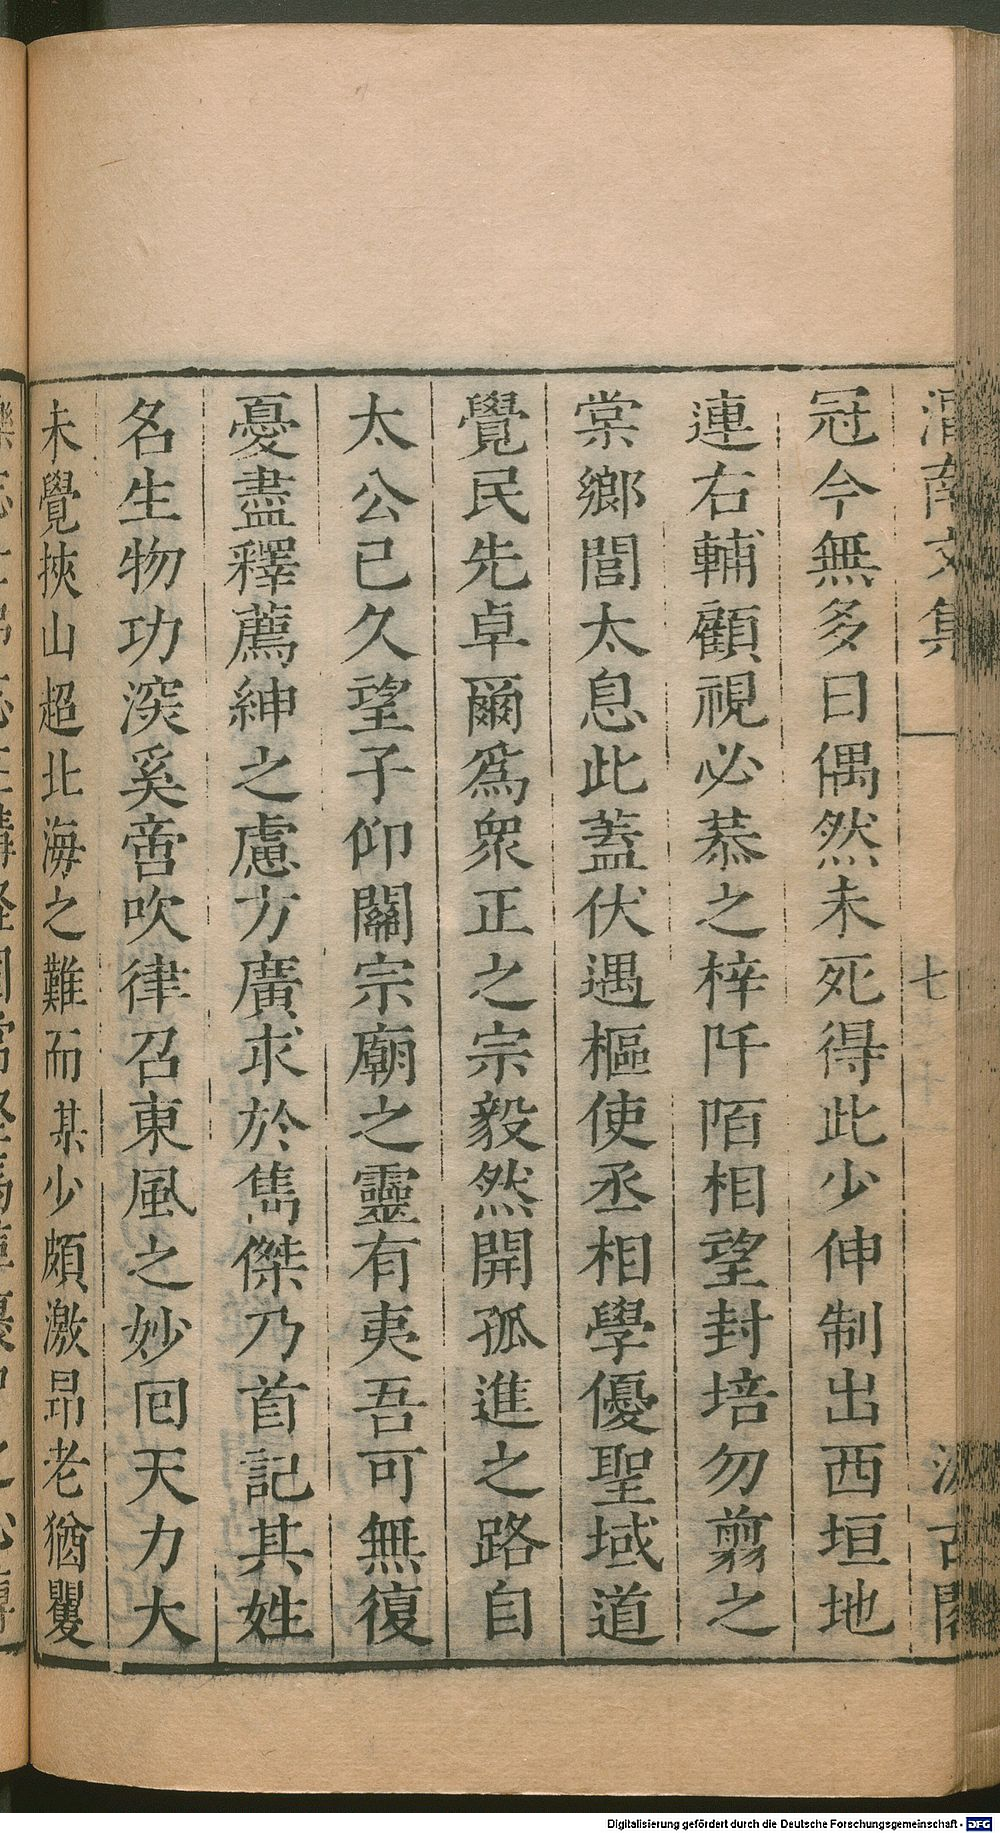 渭南文集
七
汲古閣
冠今無多曰偶然未死得此少伸制出西垣地
連右輔顧視必恭之梓阡陌相望封培勿翦之
棠鄉閭太息此蓋伏遇樞使丞相學優聖域道
覺民先卓爾爲衆正之宗毅然開孤進之路自
太公已久望子仰關宗廟之靈有夷吾可無復
憂盡釋薦紳之慮方廣求於雋傑乃首記其姓
名生物功深奚啻吹律召東風之妙回天力大
未覺挾山超北海之難而某少頗激昻老猶矍
Digitalisierung gefördert durch die Deutsche Forschungsgemeinschaft - DFG